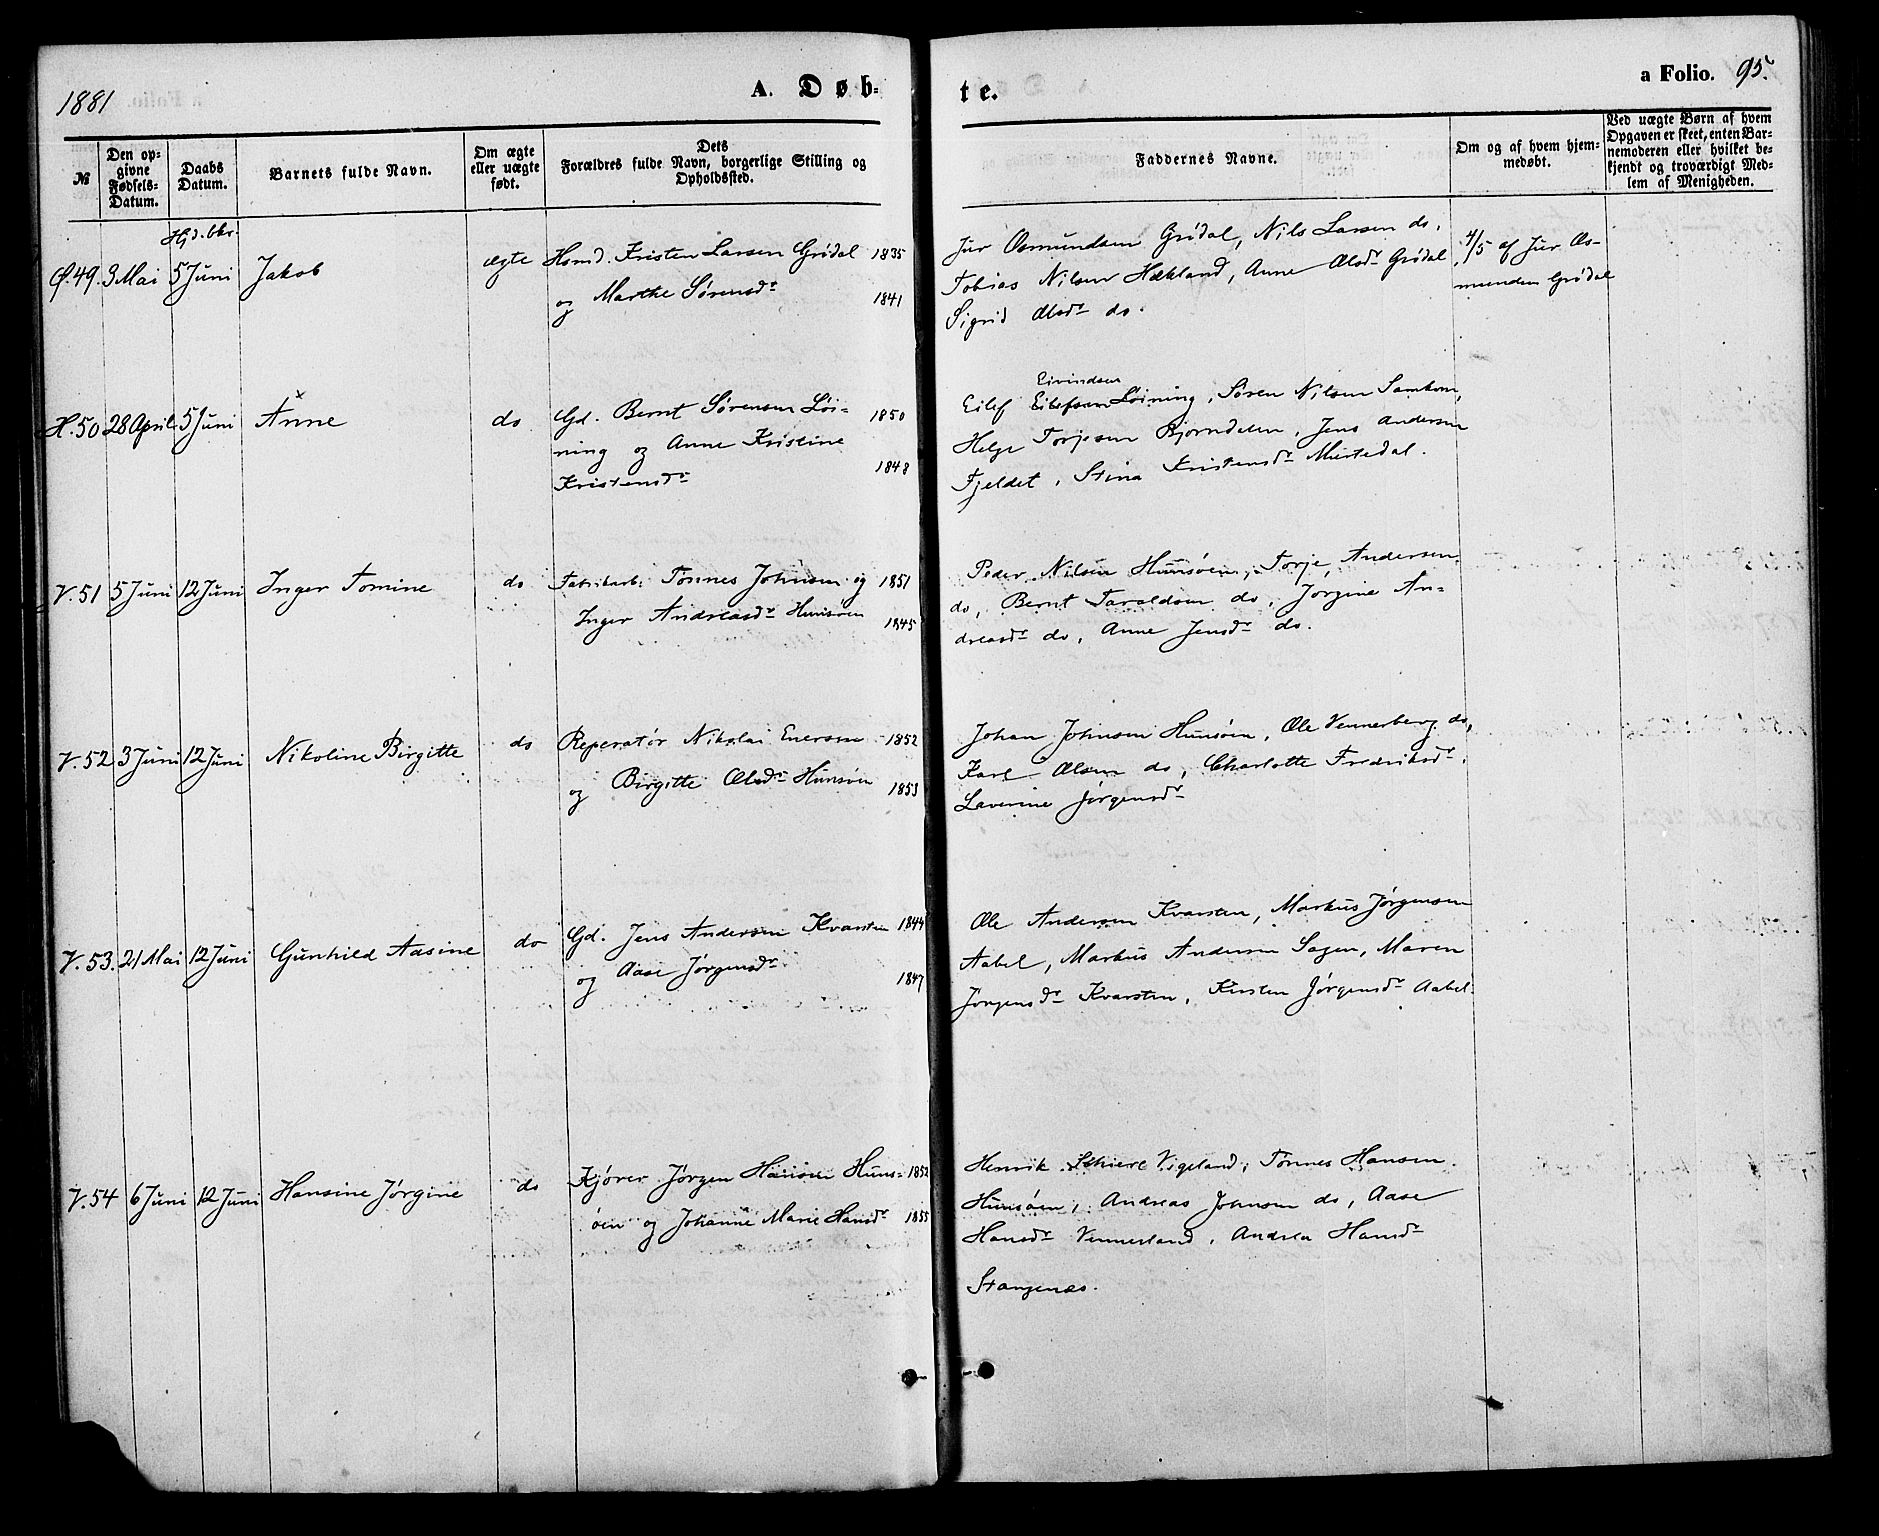 1881
A. Døb-
te.
a Folio. 95.
№
Den op-
givne
Fødsels-
Datum.
Daabs
Datum.
Barnets fulde Navn.
Om ægte
eller uægte
født.
Dets
Forældres fulde Navn, borgerlige Stilling og
Opholdssted.
Faddernes Navne.
Om og af hvem hjem-
medøbt.
Ved uægte Børn af hvem
Opgaven er skeet, enten Bar-
nemoderen eller hvilket be-
kjendt og troværdigt Med-
lem af Menigheden.
Hjd. bkr.
Ø.49. 3 Mai 5 Juni Jakob ægte Hsmd. Kristen Larsen Grødal 1835
og Marthe Sørensdr 1841
Jur Osmundsen Grødal, Nils Larsen do,
Tobias Nilsen Hækland, Anne Olsdr Grødal
Sigrid Olsdr do.
4/5 af Jur Os-
mundsen Grødal
H.50 28 April 5 Juni Anne do Gd. Bernt Sørensen Løi- 1850
ning og Anne Kristine
Kristensdr 1848
Eivindsen
Eilef Eilefsen Løining, Søren Nilsen Samkom,
Helge Torjesen Bjorndalen, Jens Andersen
Fjeldet, Stina Kristensdr Murtedal.
V.51 5 Juni 12 Juni Inger Tomine do Fabrikarb. Tønnes Johnsen og 1851
Inger Andreasdr Hunsøen 1845
Peder Nilsen Hunsøen, Torje Andersen
do, Bernt Taraldsen do, Jorgine An-
dreasdr do, Anne Jensdr do.
V.52 3 Juni 12 Juni Nikoline Birgitte do Reperatør Nikolai Enersen 1852
og Birgitte Olsdr Hunsøen 1853
Johan Johnsen Hunsøen, Ole Vennerberg do,
Karl Olsen do, Charlotte Fredriksdr,
Laverine Jørgensdr
V.53. 21 Mai 12 Juni Gunhild Aasine do Gd. Jens Andersen Kvarsten 1844
og Aase Jørgensdr 1847
Ole Andersen Kvarsten, Markus Jørgensen
Aabel, Markus Andersen Sagen, Maren
Jørgensdr Kvarsten, Kirsten Jørgensdr Aabel.
V.54 6 Juni 12 Juni Hansine Jørgine do Kjører Jørgen Hansen Huns- 1852
øen og Johanne Marie Hansdr 1855
Henrik Schiere Vigeland, Tønnes Hansen
Hunsøen, Andreas Johnsen do, Aase
Hansdr Vennesland, Andrea Hansdr
Stangenæs.